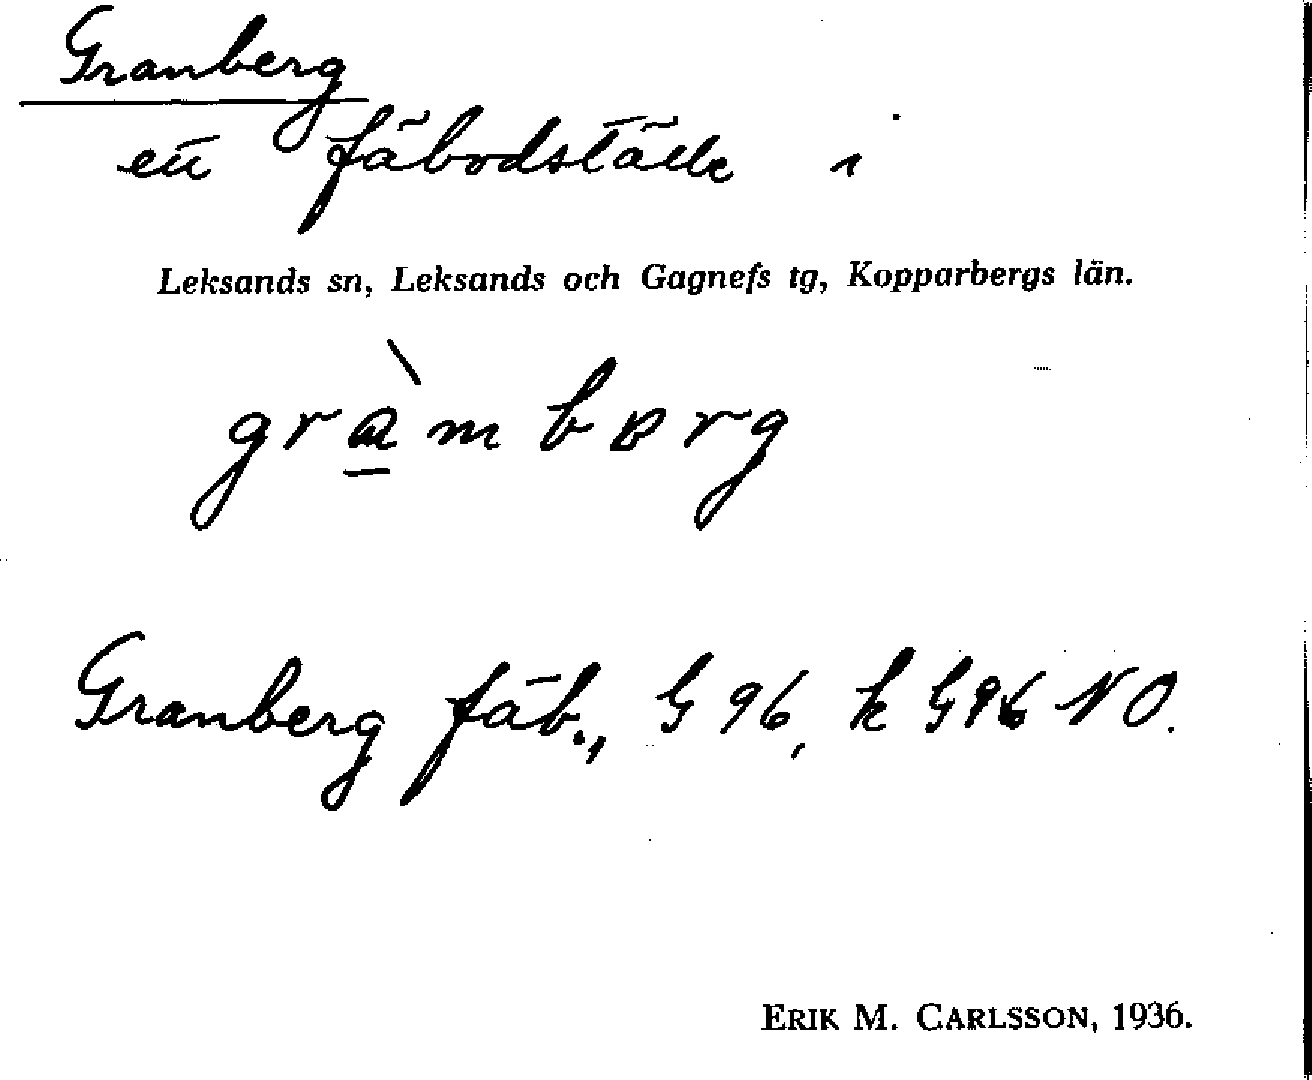 Granberg
ett fäbodställe i
Leksands sn, Leksands och Gagnefs tg, Kopparbergs län.
gràmbærg
Granberg fäb., G 96, k G 96 NO.
ERIK M. CARLSSON, 1936.